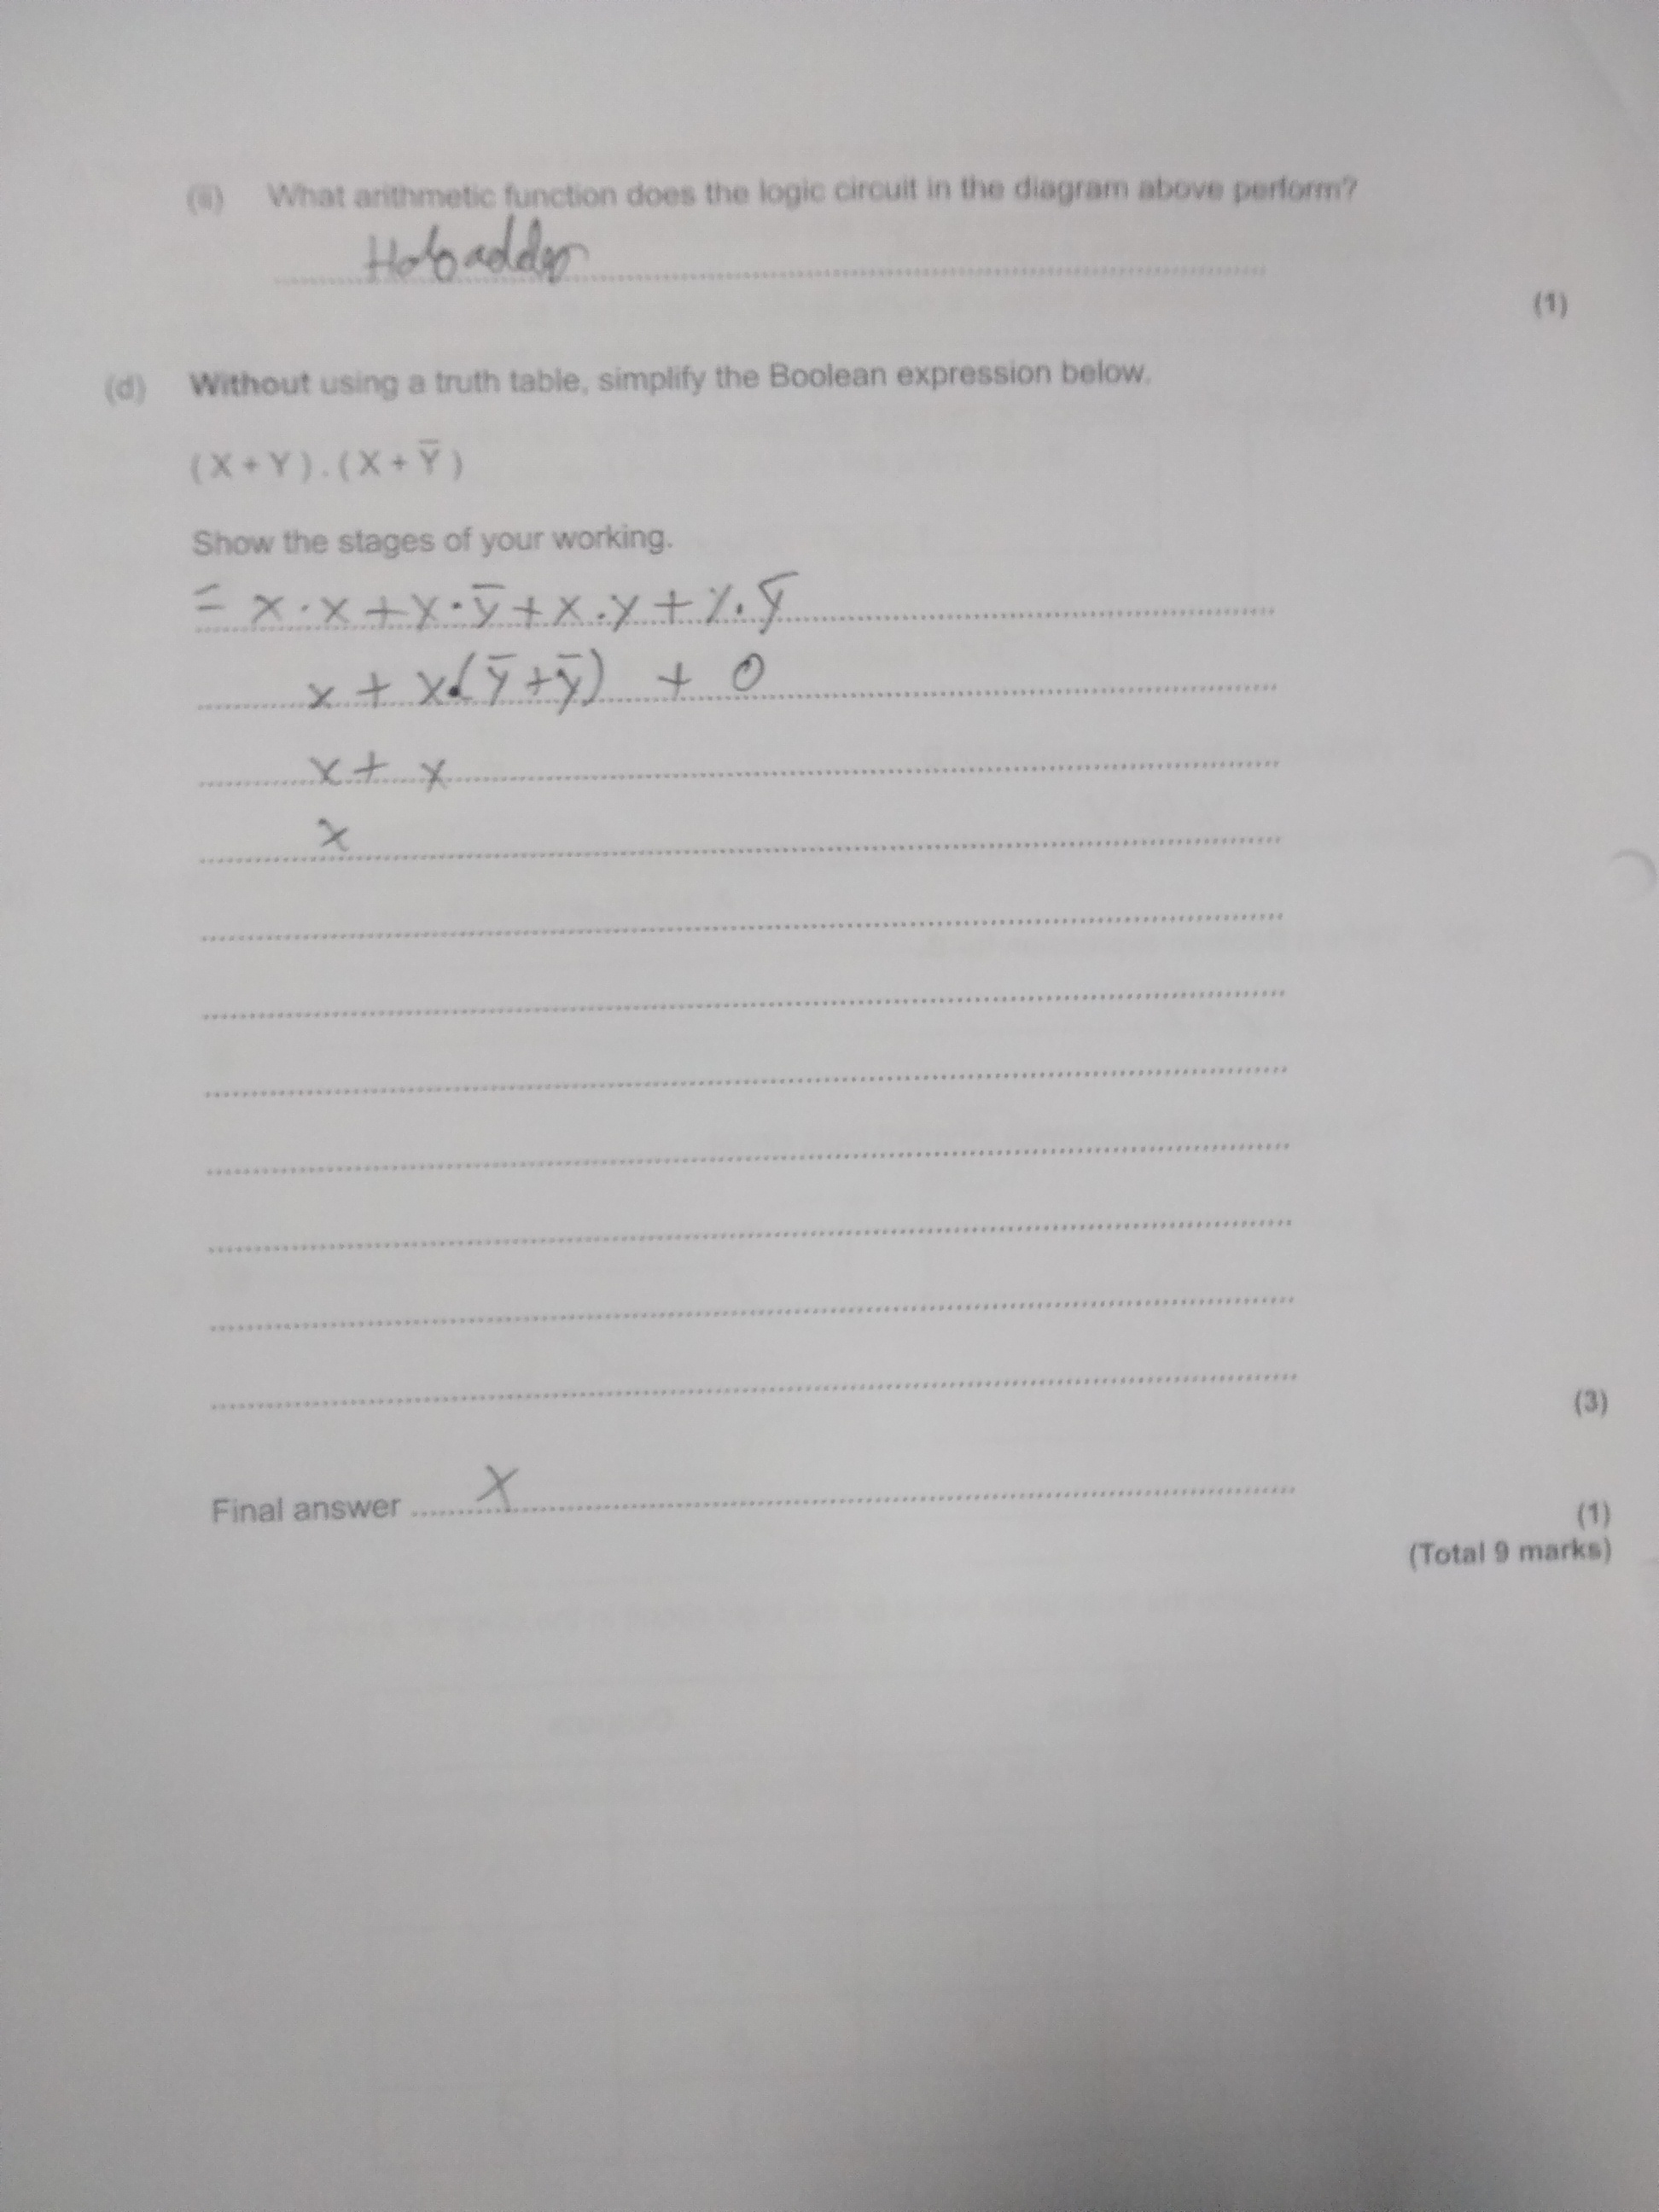 (ii) What arithmetic function does the logic circuit in the diagram above perform?
Half adder
(1)
(d) Without using a truth table, simplify the Boolean expression below.
(X + Y) . (X + Y̅)
Show the stages of your working.
= x · x + x · y̅ + x . y + y . y̅
x + x.(y̅ + y̅) + 0
x + x
x
(3)
Final answer X
(1)
(Total 9 marks)